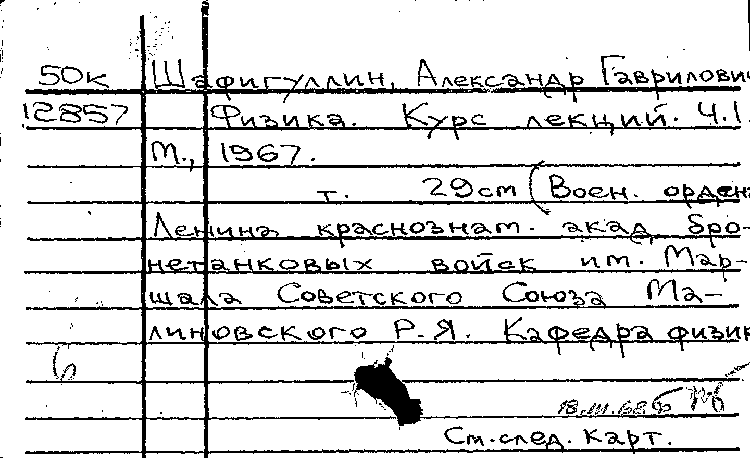 50к Шафигуллин, Александр Гаврилович
12857 Физика. Курс лекций. Ч.I.
М., 1967.
т. 29cm (Воен. ордена
Ленина краснознам. акад бро-
нетанковых войск им. Мар-
шала Советского Союза Ма-
линовского Р.Я. Кафедра физик
6
18.III.68
См.след. карт.